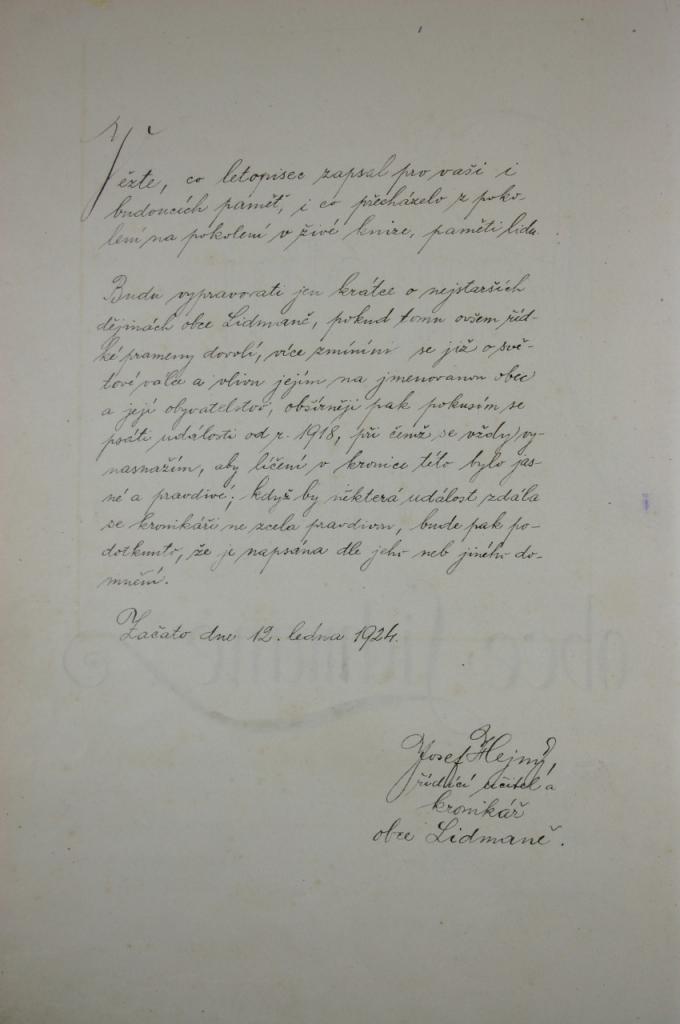 Vězte, co letopisec zapsal pro vaši i
budoucích paměť, i co přecházelo z poko-
lení na pokolení v živé knize, paměti lidu.
Budu vypravovati jen krátce o nejstarších
dějinách obce Lidmaně, pokud tomu ovšem řid-
ké prameny dovolí, více zmíním se již o svě-
tové válce a vlivu jejím na jmenovanou obec
a její obyvatelstvo, obšírněji pak pokusím se
psáti události od r. 1918, při čemž se vždy vy-
nasnažím, aby líčení v kronice této bylo jas-
né a pravdivé; když by některá událost zdála
se kronikáři ne zcela pravdivou, bude pak po-
dotknuto, že je napsána dle jeho neb jiného do-
mnění.
Začato dne 12. ledna 1924.
Josef Hejný,
řídící učitel a
kronikář
obce Lidmaně.
obce Lidmaně